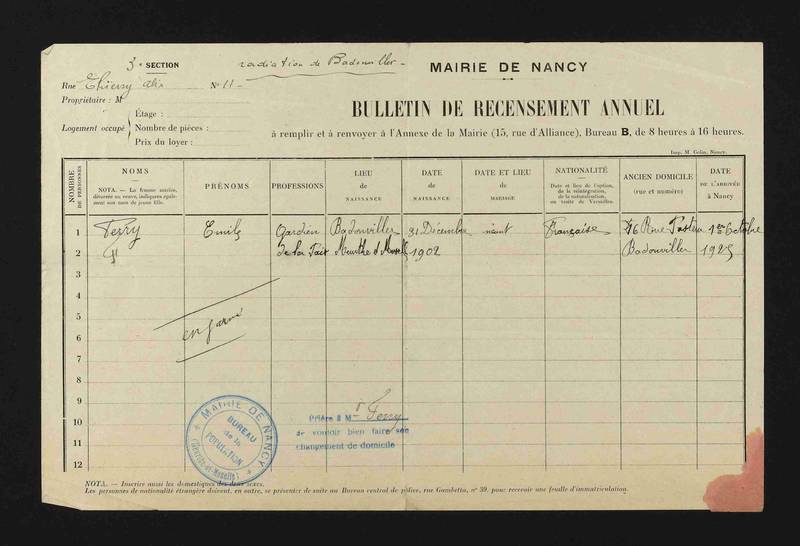 3e SECTION
radiation de Badonviller
MAIRIE DE NANCY
Rue Thierry Alix No 11
Propriétaire : M
BULLETIN DE RECENSEMENT ANNUEL
Logement occupé
Étage :
Nombre de pièces :
Prix du loyer :
à remplir et à renvoyer à l'Annexe de la Mairie (15, rue d'Alliance), Bureau B, de 8 heures à 16 heures.
Imp. M. Colin, Nancy.
NOMBRE DE PERSONNES
NOMS
NOTA. — La femme mariée, divorcée ou veuve, indiquera également son nom de jeune fille.
PRÉNOMS
PROFESSIONS
LIEU de NAISSANCE
DATE de NAISSANCE
DATE ET LIEU de MARIAGE
NATIONALITÉ
Date et lieu de l'option, de la réintégration, de la naturalisation, ou traité de Versailles.
ANCIEN DOMICILE (rue et numéro)
DATE DE L'ARRIVÉE à Nancy
1 Ferry Emile Gardien Badonviller 31 Décembre néant Française 16 Rue Pasteur 1er Octobre
2 de la Paix Meurthe et Moselle 1902 Badonviller 1925
3
4
5
6 en garni
7
8
9
10
11
12
MAIRIE DE NANCY
BUREAU
de la
POPULATION
(Meurthe-et-Moselle)
Prière à Mr Ferry
de vouloir bien faire son
changement de domicile
NOTA. — Inscrire aussi les domestiques des deux sexes.
Les personnes de nationalité étrangère doivent, en outre, se présenter de suite au Bureau central de police, rue Gambetta, no 39, pour recevoir une feuille d'immatriculation.